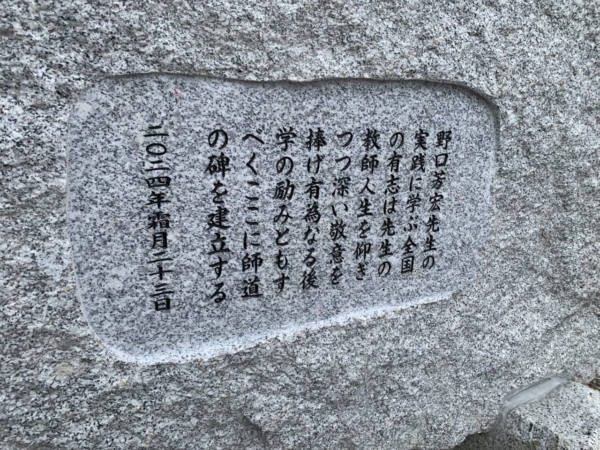 野口芳宏先生の
実践に学ぶ全国
の有志は先生の
教師人生を仰ぎ
つつ深い敬意を
捧げ有為なる後
学の励みともす
べくここに師道
の碑を建立する
二〇二四年霜月二十三日